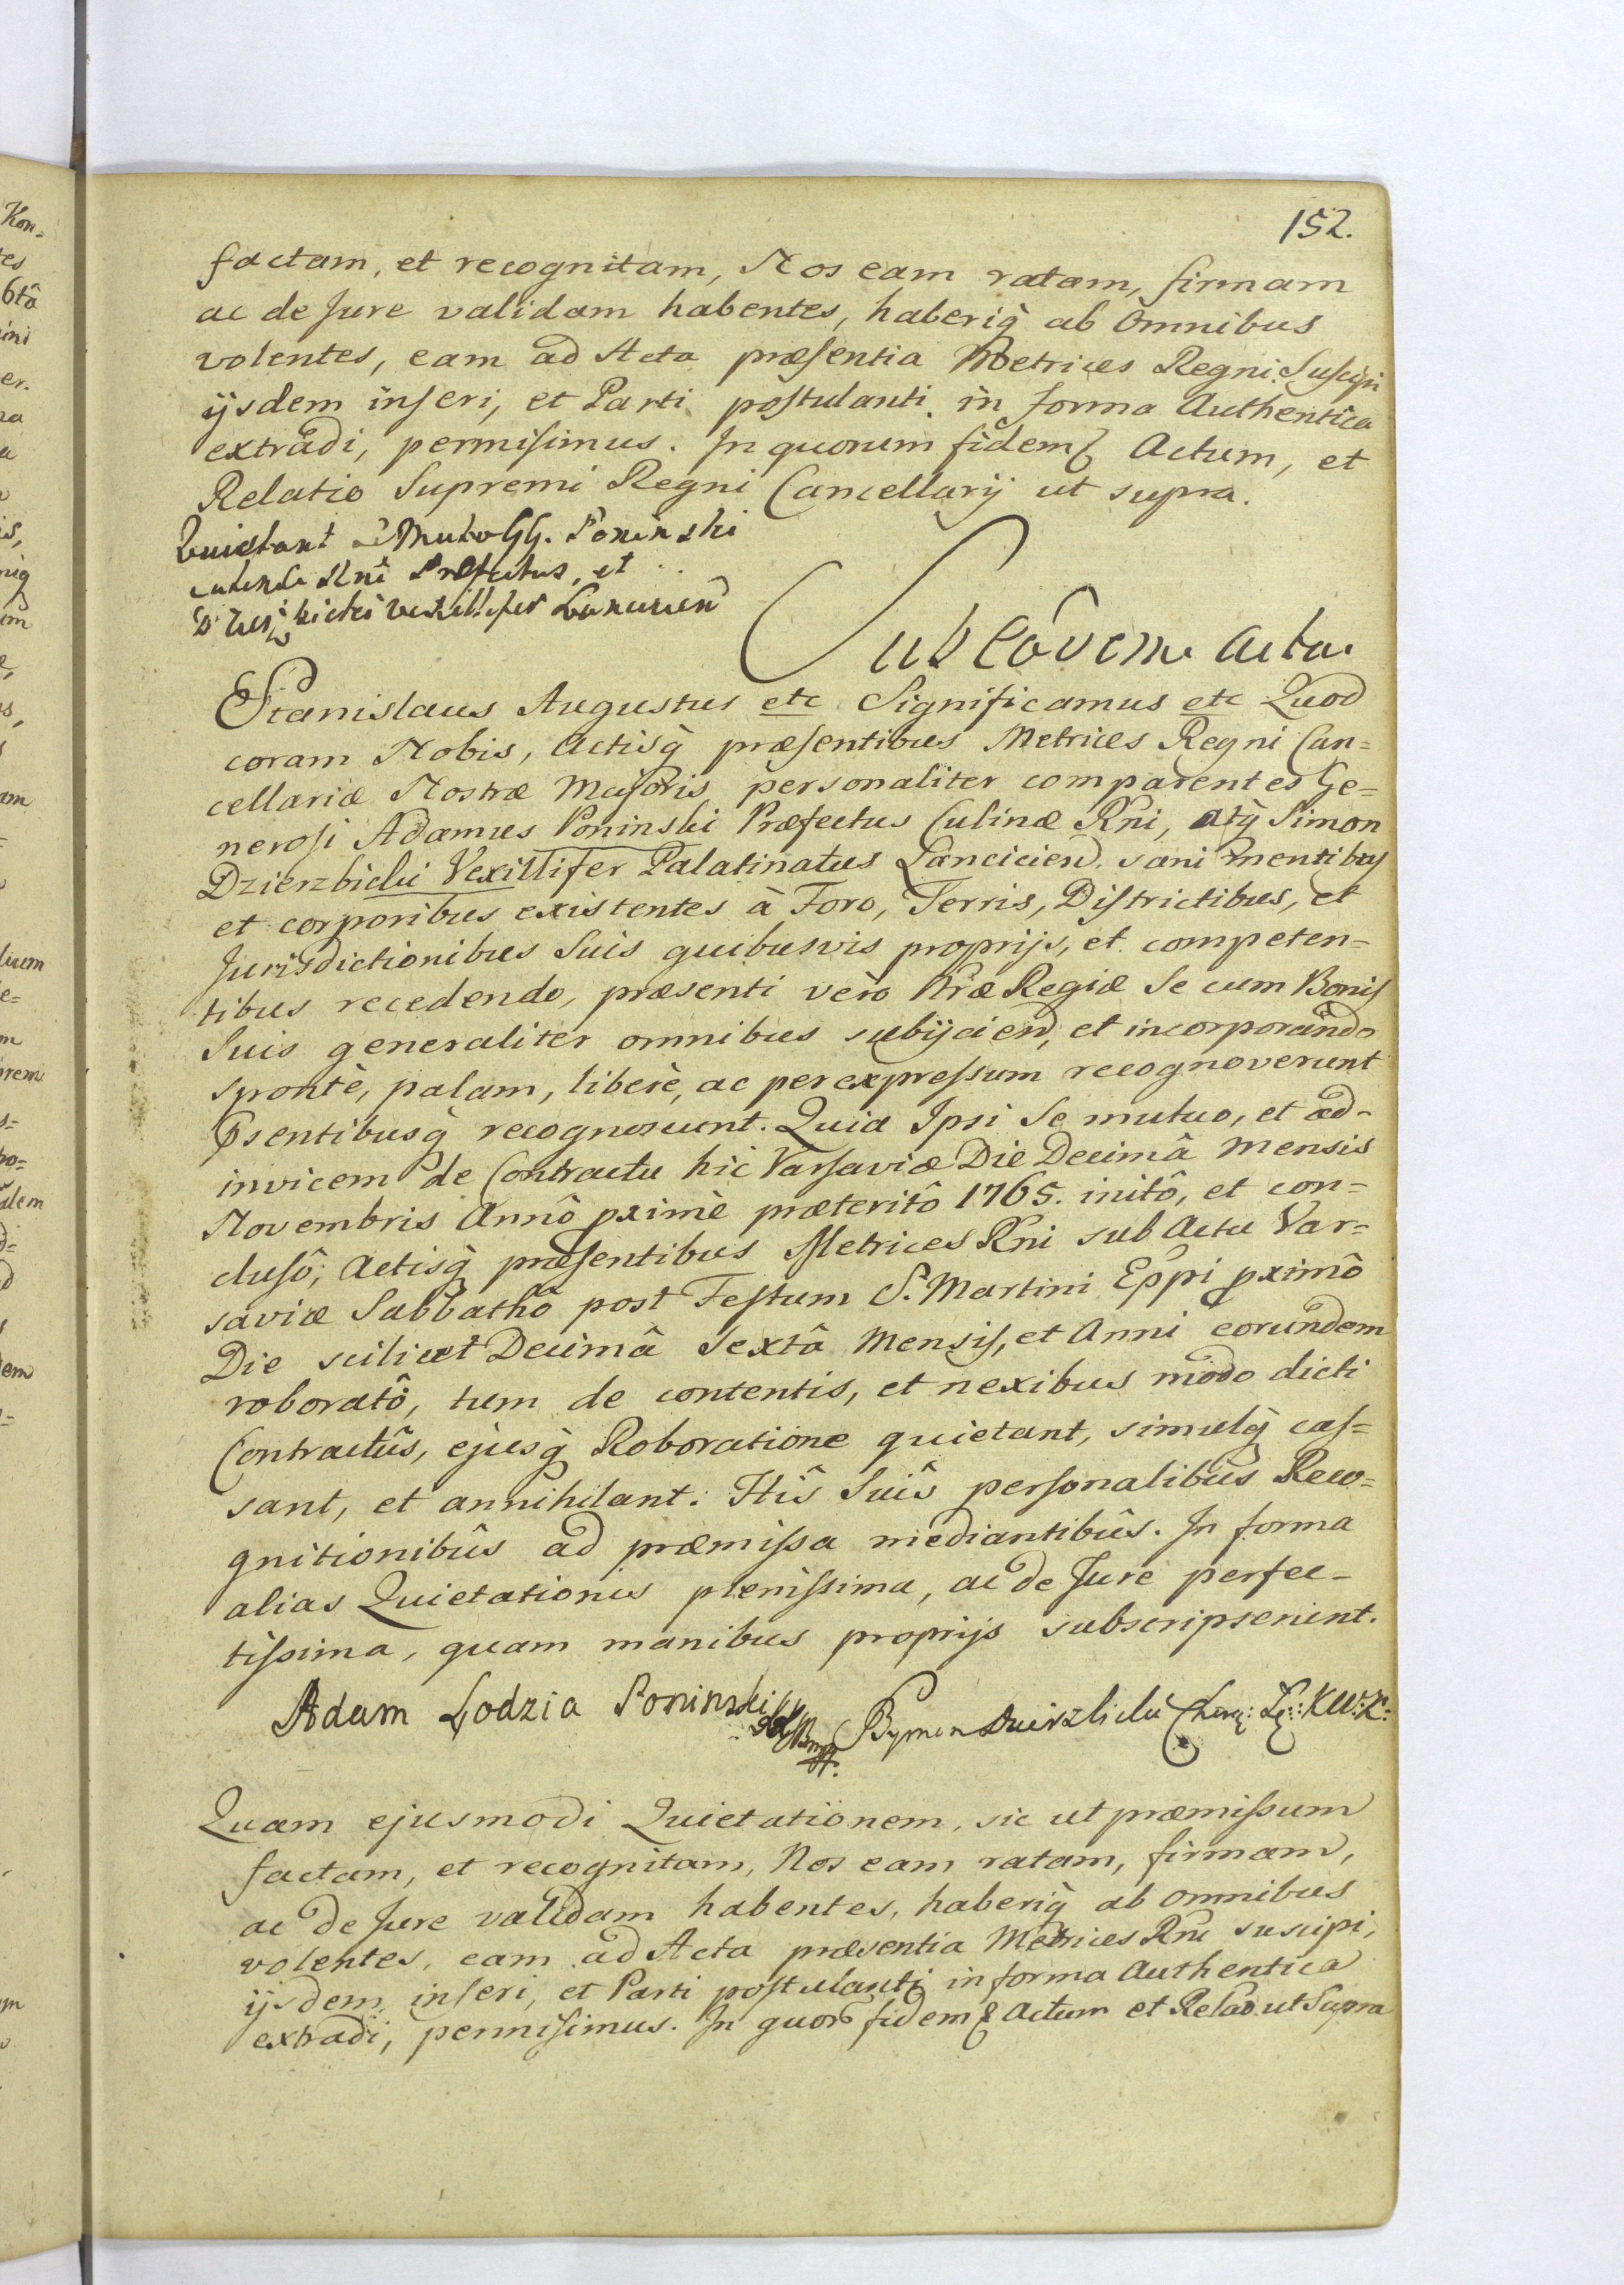 152.
factam, et recognitam, Nos eam ratam, firmam
ac de Jure validam habentes, haberiq̀ ab Omnibus
volentes, eam ad Acta præsentia Metrices Regni Suscipi
ijsdem inseri, et Parti postulanti in forma Authentica
extradi, permisimus. In quorum fidem Actum, et
Relatio Supremi Regni Cancellarij ut supra.
Quietant Mutuo GG. Poninski
Culinæ Rni Præfectus, et
Dzierzbicki Vexillifer Lancicien
Sub eodem acta.
Stanislaus Augustus etc Significamus etc Quod
coram Nobis, Actisq̀ præsentibus Metrices Regni Can=
cellariæ Nostræ Majoris personaliter comparentes Ge=
nerosi Adamus Poninski Præfectus Culinæ Rni, atq̀ Simon
Dzierzbicki Vexillifer Palatinatus Lancicien. sani mentibus
et corporibus existentes à Foro, Terris, Districtibus, et
Jurisdictionibus Suis quibusvis proprijs, et competen=
tibus recedendo, præsenti vero Nræ Regiæ Se cum Bonis
Suis generaliter omnibus subijciend, et incorporando
spontè, palam, liberè, ac per expressum recognoverunt
Psentibusq̀ recognoscunt. Quia Ipsi Se mutuo, et ad-
invicem de Contractu hic Varsaviæ Die Decimâ Mensis
Novembris Annô pximè præteritô 1765. initô, et con=
clusô, Actisq̀ præsentibus Metrices Rni sub Actu Var=
saviæ Sabbathô post Festum S. Martini Eppi pximô
Die scilicet Decimâ Sextâ Mensis, et Anni eorundem
roboratô, tum de contentis, et nexibus modo dicti
Contractûs, ejusq̀ Roboratione quietant, simulq̀ cas=
sant, et annihilant. Hîs Suîs personalibus Reco=
gnitionibûs ad præmissa mediantibûs. In forma
alias Quietationis plenissima, ac de Jure perfec-
tissima, quam manibus proprijs subscripserunt.
Adam Łodzia Poninski Szymon Dzierzbicki Chorą: Łę: KW:K:
Quam ejusmodi Quietationem, sic ut præmissum
factam, et recognitam, Nos eam ratam, firmam,
ac de Jure validam habentes, haberiq̀ ab omnibus
volentes, eam ad Acta præsentia Metrices Rni suscipi,
ijsdem inseri, et Parti postulanti in forma Authentica
extradi, permisimus. In quor fidem Actum et Relao ut Supra